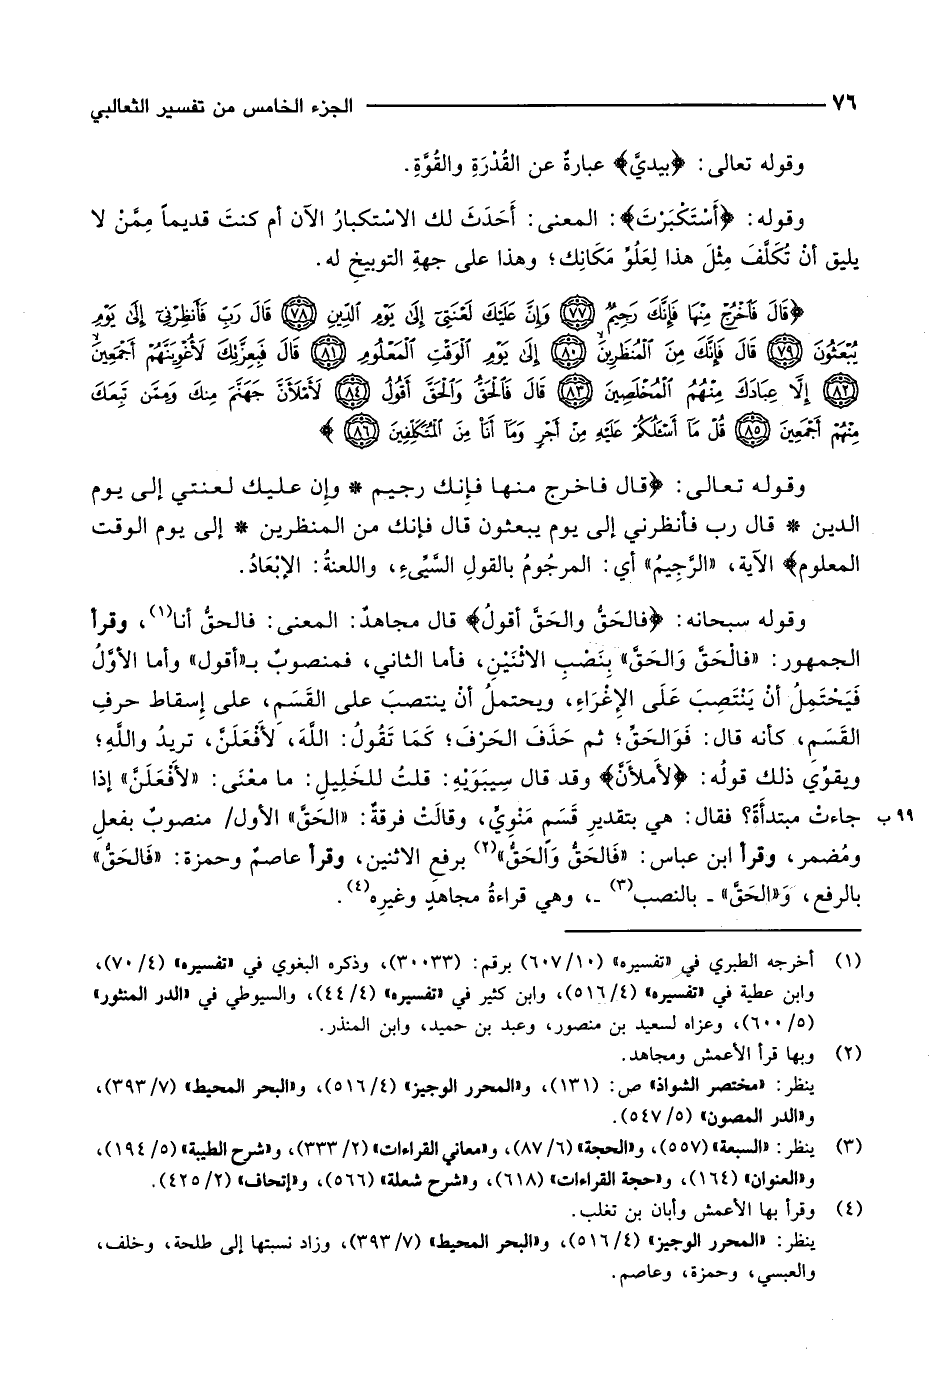 ٧٦ الجزء الخامس من تفسير الثعالبي
وقوله تعالى: ﴿بيديَّ﴾ عبارةٌ عن القُدْرَةِ والقُوَّةِ.
وقوله: ﴿أَسْتَكْبَرْتَ﴾: المعنى: أَحَدَثَ لك الاستكبارُ الآن أم كنتَ قديماً مِمَّنْ لا
يليق أنْ تُكَلَّفَ مِثْلَ هذا لِعَلُوِّ مَكَانِك؛ وهذا على جهةِ التوبيخ له.
﴿قَالَ فَٱخْرُجْ مِنْهَا فَإِنَّكَ رَجِيمٌ ٧٧ وَإِنَّ عَلَيْكَ لَعْنَتِىٓ إِلَىٰ يَوْمِ ٱلدِّينِ ٧٨ قَالَ رَبِّ فَأَنظِرْنِىٓ إِلَىٰ يَوْمِ
يُبْعَثُونَ ٧٩ قَالَ فَإِنَّكَ مِنَ ٱلْمُنظَرِينَ ٨٠ إِلَىٰ يَوْمِ ٱلْوَقْتِ ٱلْمَعْلُومِ ٨١ قَالَ فَبِعِزَّتِكَ لَأُغْوِيَنَّهُمْ أَجْمَعِينَ
٨٢ إِلَّا عِبَادَكَ مِنْهُمُ ٱلْمُخْلَصِينَ ٨٣ قَالَ فَٱلْحَقُّ وَٱلْحَقَّ أَقُولُ ٨٤ لَأَمْلَأَنَّ جَهَنَّمَ مِنكَ وَمِمَّن تَبِعَكَ
مِنْهُمْ أَجْمَعِينَ ٨٥ قُلْ مَآ أَسْـَٔلُكُمْ عَلَيْهِ مِنْ أَجْرٍ وَمَآ أَنَا۠ مِنَ ٱلْمُتَكَلِّفِينَ ٨٦ ﴾
وقوله تعالى: ﴿قال فاخرج منها فإنك رجيم * وإن عليك لعنتي إلى يوم
الدين * قال رب فأنظرني إلى يوم يبعثون قال فإنك من المنظرين * إلى يوم الوقت
المعلوم﴾ الآية، «الرَّجِيمُ» أي: المرجُومُ بالقولِ السَّيِّىءِ، واللعنةُ: الإبْعَادُ.
وقوله سبحانه: ﴿فالحَقُّ والحَقَّ أقولُ﴾ قال مجاهدٌ: المعنى: فالحقُّ أنا(١)، وقرأ
الجمهور: «فالْحَقَّ وَالحَقَّ» بِنَصْبِ الاثْنَيْنِ، فأما الثاني، فمنصوبٌ بـ«أقول» وأما الأوَّلُ
فَيَحْتَمِلُ أنْ يَنْتَصِبَ عَلَى الإِغْرَاءِ، ويحتملُ أنْ ينتصبَ على القَسَمِ، على إسقاط حرفِ
القَسَمِ، كأنه قال: فَوَالحَقِّ؛ ثم حَذَفَ الحَرْفَ؛ كَمَا تَقُولُ: اللَّهَ، لأَفْعَلَنَّ، تريدُ واللَّهِ؛
ويقوِّي ذلك قولُه: ﴿لأملأنَّ﴾ وقد قال سِيبَوَيْهِ: قلتُ للخَلِيلِ: ما معْنَى: «لأَفْعَلَنَّ» إذا
٩٩ ب جاءتْ مبتدأَةً؟ فقال: هي بتقديرِ قَسَمٍ مَنْوِيٍّ، وقالَتْ فرقةٌ: «الحَقَّ» الأول/ منصوبٌ بفعلِ
ومُضمرٍ، وقرأ ابن عباس: «فَالحَقُّ وَالْحَقُّ»(٢) برفعِ الاثنين، وقرأ عاصمٌ وحمزة: «فَالحَقُّ»
بالرفعِ، وَ«الحَقَّ» ـ بالنصب(٣) ـ، وهي قراءةُ مجاهدٍ وغيرِه(٤).
(١) أخرجه الطبري في «تفسيره» (١٠/٦٠٧) برقم: (٣٠٠٣٣)، وذكره البغوي في «تفسيره» (٤/٧٠)،
وابن عطية في «تفسيره» (٤/٥١٦)، وابن كثير في «تفسيره» (٤/٤٤)، والسيوطي في «الدر المنثور»
(٥/٦٠٠)، وعزاه لسعيد بن منصور، وعبد بن حميد، وابن المنذر.
(٢) وبها قرأ الأعمش ومجاهد.
ينظر: «مختصر الشواذ» ص: (١٣١)، و«المحرر الوجيز» (٤/٥١٦)، و«البحر المحيط» (٧/٣٩٣)،
و«الدر المصون» (٥/٥٤٧).
(٣) ينظر: «السبعة» (٥٥٧)، و«الحجة» (٦/٨٧)، و«معاني القراءات» (٢/٣٣٣)، و«شرح الطيبة» (٥/١٩٤)،
و«العنوان» (١٦٤)، و«حجة القراءات» (٦١٨)، و«شرح شعلة» (٥٦٦)، و«إتحاف» (٢/٤٢٥).
(٤) وقرأ بها الأعمش وأبان بن تغلب.
ينظر: «المحرر الوجيز» (٤/٥١٦)، و«البحر المحيط» (٧/٣٩٣)، وزاد نسبتها إلى طلحة، وخلف،
والعبسي، وحمزة، وعاصم.